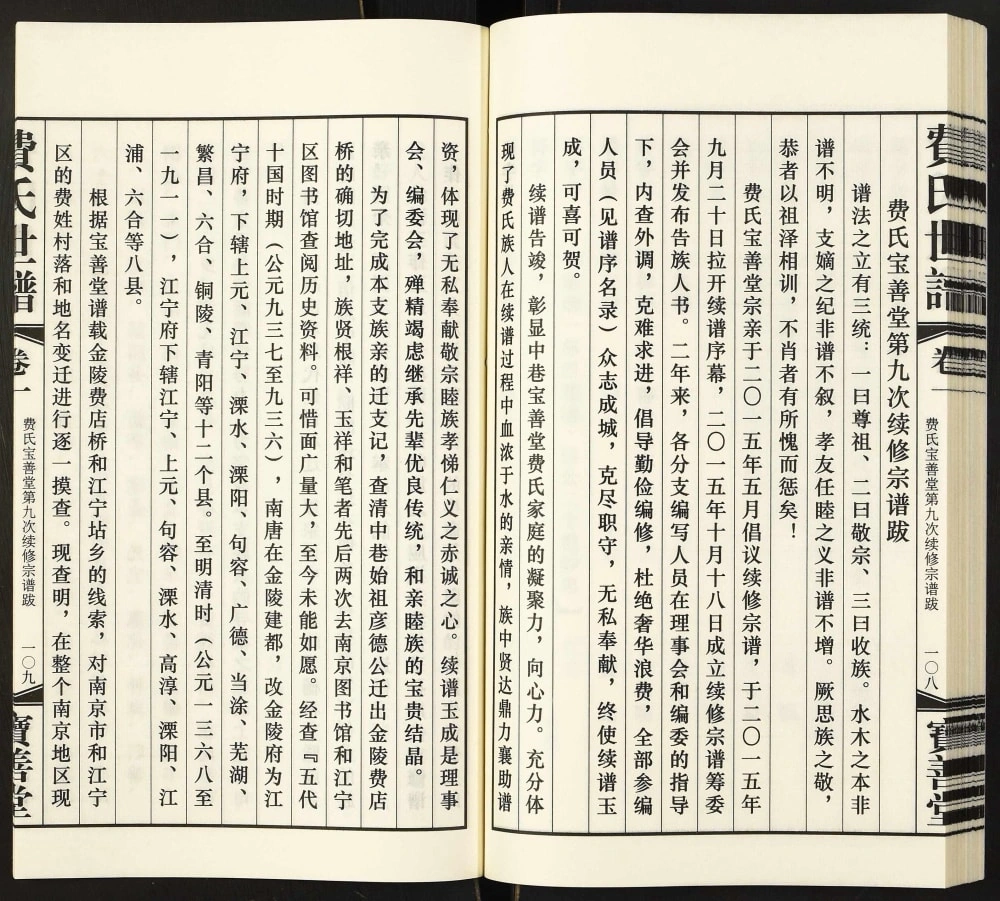 費氏世譜
卷一
费氏宝善堂第九次续修宗谱跋
一〇八
寶善堂
费氏宝善堂第九次续修宗谱跋
谱法之立有三统：一曰尊祖、二曰敬宗、三曰收族。水木之本非
谱不明，支嫡之纪非谱不叙，孝友任睦之义非谱不增。厥思族之敬，
恭者以祖泽相训，不肖者有所愧而惩矣！
费氏宝善堂宗亲于二〇一五年五月倡议续修宗谱，于二〇一五年
九月二十日拉开续谱序幕，二〇一五年十月十八日成立续修宗谱筹委
会并发布告族人书。二年来，各分支编写人员在理事会和编委的指导
下，内查外调，克难求进，倡导勤俭编修，杜绝奢华浪费，全部参编
人员（见谱序名录）众志成城，克尽职守，无私奉献，终使续谱玉
成，可喜可贺。
续谱告竣，彰显中巷宝善堂费氏家庭的凝聚力，向心力。充分体
现了费氏族人在续谱过程中血浓于水的亲情，族中贤达鼎力襄助谱
资，体现了无私奉献敬宗睦族孝悌仁义之赤诚之心。续谱玉成是理事
会、编委会，殚精竭虑继承先辈优良传统，和亲睦族的宝贵结晶。
为了完成本支族亲的迁支记，查清中巷始祖彦德公迁出金陵费店
桥的确切地址，族贤根祥、玉祥和笔者先后两次去南京图书馆和江宁
区图书馆查阅历史资料。可惜面广量大，至今未能如愿。经查『五代
十国时期（公元九三七至九三六），南唐在金陵建都，改金陵府为江
宁府，下辖上元、江宁、溧水、溧阳、句容、广德、当涂、芜湖、
繁昌、六合、铜陵、青阳等十二个县。至明清时（公元一三六八至
一九一一），江宁府下辖江宁、上元、句容、溧水、高淳、溧阳、江
浦、六合等八县。
根据宝善堂谱载金陵费店桥和江宁坫乡的线索，对南京市和江宁
区的费姓村落和地名变迁进行逐一摸查。现查明，在整个南京地区现
費氏世譜
卷一
费氏宝善堂第九次续修宗谱跋
一〇九
寶善堂